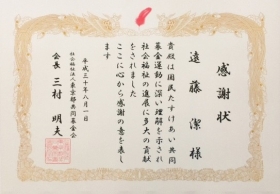 感謝状
遠藤潔様
貴殿は国民たすけあい共同
募金運動に深い理解を示され
社会福祉の進展に多大の貢献
をされました
ここに心から感謝の意を表し
ます
平成三十年八月一日
社会福祉法人東京都共同募金会
会長 三村明夫